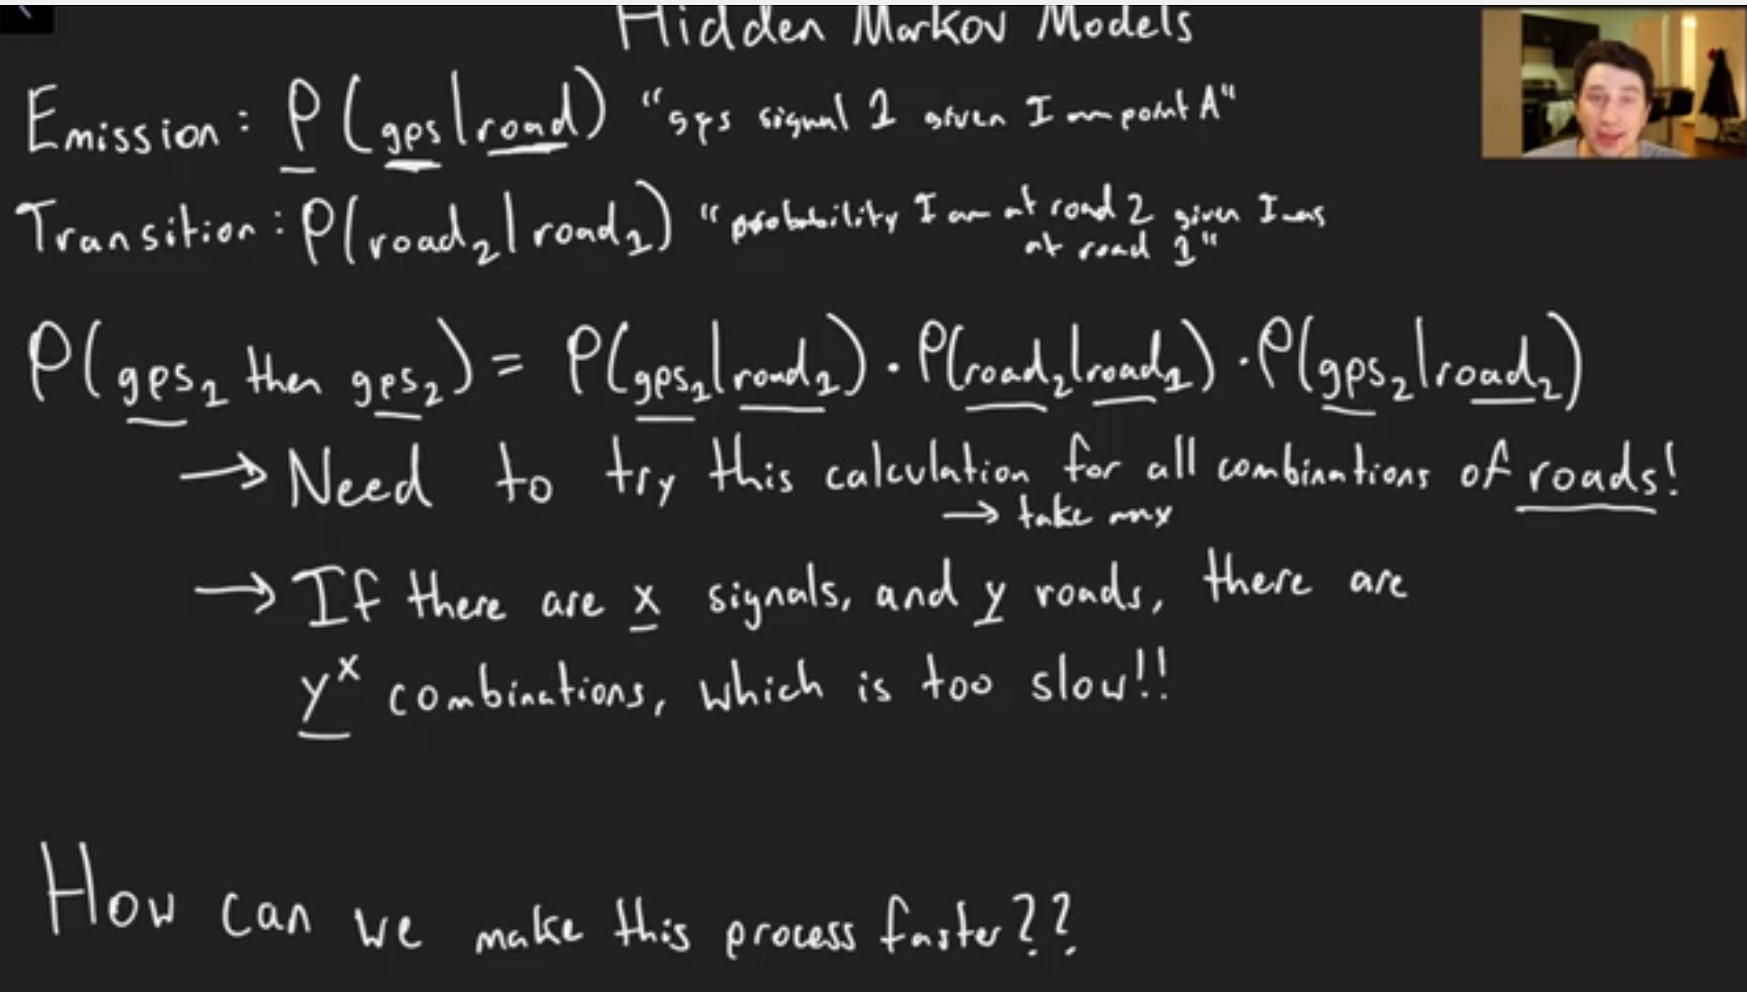 Hidden Markov Models
Emission: P(gps|road) "gps signal 1 given I am point A"
Transition: P(road₂|road₁) "probability I am at road 2 given I was
at road 1"
P(gps₁ then gps₂) = P(gps₁|road₁) · P(road₂|road₁) · P(gps₂|road₂)
→ Need to try this calculation for all combinations of roads!
→ take max
→ If there are x signals, and y roads, there are
yˣ combinations, which is too slow!!
How can we make this process faster??